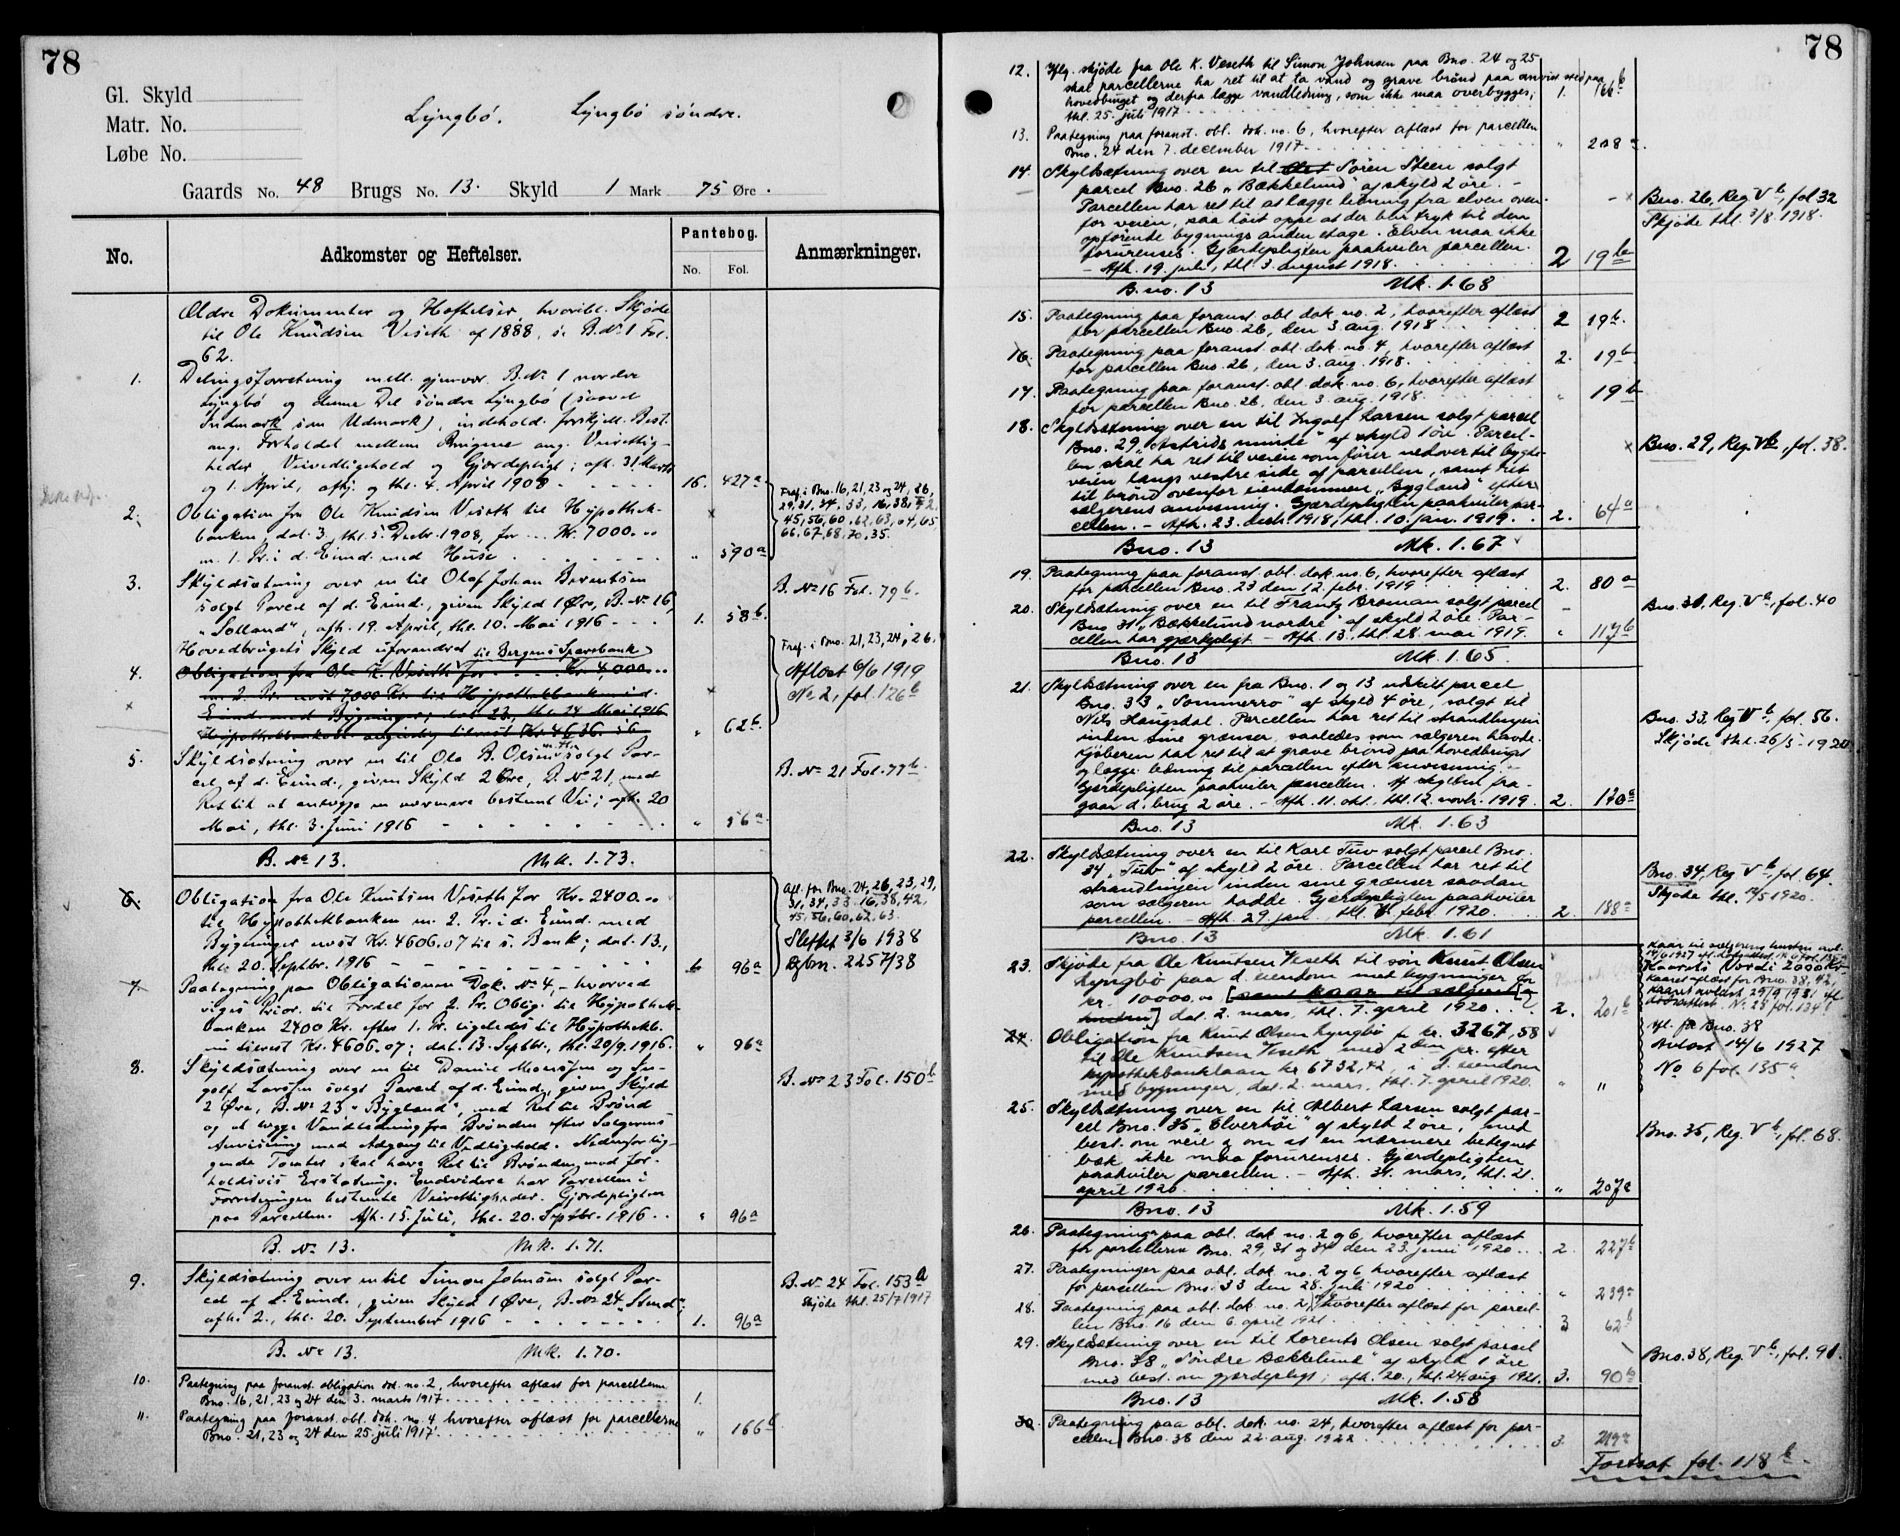 78
Gl. Skyld
Matr. No.
Løbe No.
Lyngbö. Lyngbö söndre.
Gaards No. 48 Brugs No. 13. Skyld 1 Mark 75 Øre.
No. Adkomster og Heftelser. Pantebog. No. Fol. Anmærkninger.
Ældre Dokumenter og Heftelser, hvoribl. Skjøde
til Ole Knudsen Veseth af 1888, se B.No 1 Fol.
62.
1. Delingsforretning mell. gjenvær. B.No 1 nordre
Lyngbö og denne Del söndre Lyngbö (saavel
Indmark som Udmark), indehold. forskjell. Best.
ang. Forholdet mellem Brugene ang. Veirettig-
heder, Veivedligehold og Gjærdepligt; afh. 31 Marts
og 1. April, afhj. og thl. 4. April 1908 - - - - - 16. 427a
2. Obligation fra Ole Knudsen Veseth til Hypothek-
banken, dat. 3, thl. 5. Decbr. 1908, for ... Kr. 7000...
m. 1. Pr. i d. Eiend. med Huse . . . . . " 590a
Fraf. i Bno. 16, 21, 23 og 24, 26,
29, 31, 34, 33, 16, 38, 42,
45, 56, 60, 62, 63, 64, 65
66, 67, 68, 70, 35.
3. Skyldsætning over en til Olaf Johan Berentsen
solgt Parcel af d. Eiend., given Skyld 1 Øre, B.No 16,
"Solland", afh. 19. April, thl. 10. Mai 1916 - - - 1. 58b.
B. No 16 Fol. 79b.
Hovedbrugets Skyld uforandret til Bergens Sparebank
4. Obligation fra Ole K. Veseth for - - - Kr. 4,000...
m. 2. Pr. næst 7000 Kr. til Hypothekbanken i d.
Eiend. med Bygninger; dat. 23., thl. 24. Mai 1916
Hypothekbankobl. angivelig tilrest Kr. 4636.56 " 62b
Fraf. i Bno. 21, 23, 24, 26.
Aflæst 6/6 1919
No 2, fol. 126b
5. Skyldsætning over en til Ole B. Olsen m. fl. solgt Par-
cel af d. Eiend., given Skyld 2 Øre, B. No 21, med
Ret til at anlægge en nærmere bestemt Vei; afh. 20
Mai, thl. 3. Juni 1916 - - - - - - - " 56a
B. No 21 Fol. 77b.
B. No 13. Mk. 1.73.
6. Obligation fra Ole Knutsen Veseth for Kr. 2400...
til Hypothekbanken m. 2. Pr. i d. Eiend. med
Bygninger næst Kr. 4606.07 til s. Bank; dat. 13.,
thl. 20. Septbr. 1916 - - - - - - 6 96a
Afl. for Bno. 24, 26, 23, 29,
31, 34, 33. 16, 38, 42,
45, 56, 60, 62, 63.
Slettet 3/6 1938
Dgbnr. 2257/38
7. Paategning paa Obligationen Dok. No 4, - hvorved
viges Prior. til Fordel for 2. Pr. Oblig. til Hypothek-
banken 2400 Kr. efter 1. Pr. ligeledes til Hypothekb.
nu tilrest Kr. 4606.07; dat. 13. Septbr., thl. 20/9. 1916. " 96a
8. Skyldsætning over en til Daniel Monsen og In-
golf Larsen solgt Parcel af d. Eiend., given Skyld
2 Øre, B. No 23, "Bygland", med Ret til Brönd
og at lægge Vandledning fra Brönden efter Sælgerens
Anvisning med Adgang til Vedligehold. Nedenforlig-
gende Tomter skal have Ret til Brönden mod for-
holdsvis Erstatning. Endvidere har Parcellen i
Forretningen bestemte Veirettigheder. Gjærdepligten
paa Parcellen. Afh. 15. Juli, thl. 20. Septbr. 1916 . . " 96a
B. No 23 Fol. 150b
B. No 13. Mk. 1.71.
9. Skyldsætning over en til Simon Johnsen solgt Par-
cel af d. Eiend., given Skyld 1 Øre, B. No 24,
afh. 2., thl. 20. September 1916 - - - - - - 1. 96a
B. No 24 Fol. 153a
Skjöde thl. 25/7 1917
B. No 13. Mk. 1.70.
10. Paategning paa foranst. obligation dok. no. 2, hvorefter aflæst for parcellerne
Bno. 16, 21, 23 og 24 den 3. marts 1917 . . . . 1.
11. Paategning paa foranst. obl. dok. no. 4 hvorefter aflæst for parcellerne
Bno. 21, 23 og 24 den 25. juli 1917 . . . . " 166b
78
12. Iflg. skjöde fra Ole K. Veseth til Simon Johnsen paa Bno. 24 og 25
skal parcellerne ha ret til at ta vand og grave brönd paa anvist sted paa
hovedbruget og derfra lægge vandledning, som ikke maa overbygges;
thl. 25. juli 1917 1. 166b
13. Paategning paa foranst. obl. dok. no. 6, hvorefter aflæst for parcellen
Bno. 24 den 7. december 1917 . . . . " 208a.
14. Skyldsætning over en til Sören Steen solgt
parcel Bno. 26 "Bækkelund" af skyld 2 öre. -
Parcellen har ret til at lægge ledning fra elven oven-
for veien, saa höit oppe at der blir tryk til den
opförende bygnings anden etage. Elven maa ikke
forurenses. Gjærdepligten paahviler parcellen.
- Afh. 19. juli, thl. 3. august 1918 . . . 2 19b
Bno. 26, Reg. Vb, fol. 32
Skjöde thl. 3/8 1918.
B. no. 13 Mk. 1.68
15. Paategning paa foranst. obl. dok. no. 2, hvorefter aflæst
for parcellen Bno. 26, den 3. aug. 1918 . . . 2 19b.
16. Paategning paa foranst. obl. dok. no. 4, hvorefter aflæst
for parcellen Bno. 26, den 3. aug. 1918. . . . 2. 19b
17. Paategning paa foranst. obl. dok. no. 6, hvorefter aflæst
for parcellen Bno. 26, den 3. aug. 1918. . . . " 19b
18. Skyldsætning over en til Ingolf Larsen solgt parcel
Bno. 29, "Astrids minde" af skyld 1 öre. Parcel-
len skal ha ret til veien som förer nedover til bygde-
veien langs vestre side af parcellen, samt ret
til brönd ovenfor eiendommen "Bygland" efter
sælgerens anvisning. Gjærdepligten paahviler par-
cellen. - Afh. 23. decb. 1918, thl. 10. jan. 1919. . . 2. 64a
Bno. 29, Reg. Vb, fol. 38.
Bno. 13 Mk. 1.67
19. Paategning paa foranst. obl. dok. no. 6, hvorefter aflæst
for parcellen Bno. 23 den 12. febr. 1919 . . . 2. 80a
20. Skyldsætning over en til Frantz Broman solgt parcel
Bno 31 "Bækkelund nordre" af skyld 2 öre. Par-
cellen har gjærdepligt - Afh. 13. thl. 28. mai 1919. " 117b
Bno. 31, Reg. Vb, fol. 40
Bno. 13 Mk. 1.65.
21. Skyldsætning over en fra Bno. 1 og 13 utskilt parcel
Bno. 33 "Sommerro" af skyld 4 öre, solgt til
Nils Haugsdal. Parcellen har ret til strandlinjen
inden sine grænser, saaledes som sælgeren havde.
Kjöberen har ret til at grave brönd paa hovedbruget
og lægge ledning til parcellen efter anvisning. -
Gjærdepligten paahviler parcellen. Af skylden fra-
gaar d. brug 2 öre. - Afh. 11. okt., thl. 12. novbr. 1919. 2. 170a
Bno. 33, Reg. Vb, fol. 56.
Skjöde thl. 26/5 - 1920
Bno. 13 Mk. 1.63
22. Skyldsætning over en til Karl Tuv solgt parcel Bno.
34 "Tuv" af skyld 2 öre. Parcellen har ret til
strandlinjen inden sine grænser saadan
som sælgeren hadde. Gjærdepligten paahviler
parcellen. - Afh. 29. jan. thl. febr. 1920. . . . 2. 188a
Bno. 34, Reg. Vb, fol. 64.
Bno. 13 Mk. 1.61
23. Skjöde fra Ole Knutsen Veseth til sön Knut Olsen
Lyngbö paa d. eiendom med bygninger for
kr. 10000.00 [samt kaar til sælgeren og
hustru] dat. 2. mars, thl. 7. april 1920 . . . 2. 201b
24. Obligation fra Knut Olsen Lyngbö for kr. 3267,58
til Ole Knutsen Veseth med 2den pr. efter
hypothekbanklaan kr 6732,42, i d. eiendom
med bygninger, dat. 2. mars, thl. 7. april 1920. " "
Afl. for Bno. 38
Avlæst 14/6 1927
No 6 fol. 135a
25. Skyldsætning over en til Albert Larsen solgt par-
cel Bno. 35 "Elverhöi" af skyld 2 öre, med
best. om veie og om at en nærmere betegnet
bæk ikke maa forurenses. Gjærdepligten
paahviler parcellen. - Afh. 31. mars, thl. 21.
april 1920 . . . . " 207a
Bno. 35, Reg. Vb, fol. 68.
Bno. 13 Mk. 1.59
26. Paategninger paa obl. dok. no. 2 og 6, hvorefter aflæst
for parcellerne Bno. 29, 31 og 34 den 23. juni 1920 . . . 2. 227b
27. Paategninger paa obl. dok. no. 2 og 6 hvorefter aflæst
for parcellen Bno. 33 den 28. juli 1920 . . . " 239a
28. Paategning paa obl. dok. no. 2, hvorefter aflæst for parcel-
len Bno. 16 den 6. april 1921 . . . 3 62b
29. Skyldsætning over en til Lorents Olsen solgt parcel
Bno. 38 "Söndre Bækkelund" af skyld 1 öre
med best. om gjærdepligt; afh. 20., thl. 24. aug 1921. 3. 90b
Bno. 38, Reg. Vb, fol. 91.
Bno. 13 Mk. 1.58
30. Paategning paa obl. dok. no. 24, hvorefter aflæst for par-
cellen Bno. 38 den 22. aug. 1922 . . . . 3. 219a
Fortsat fol. 118b